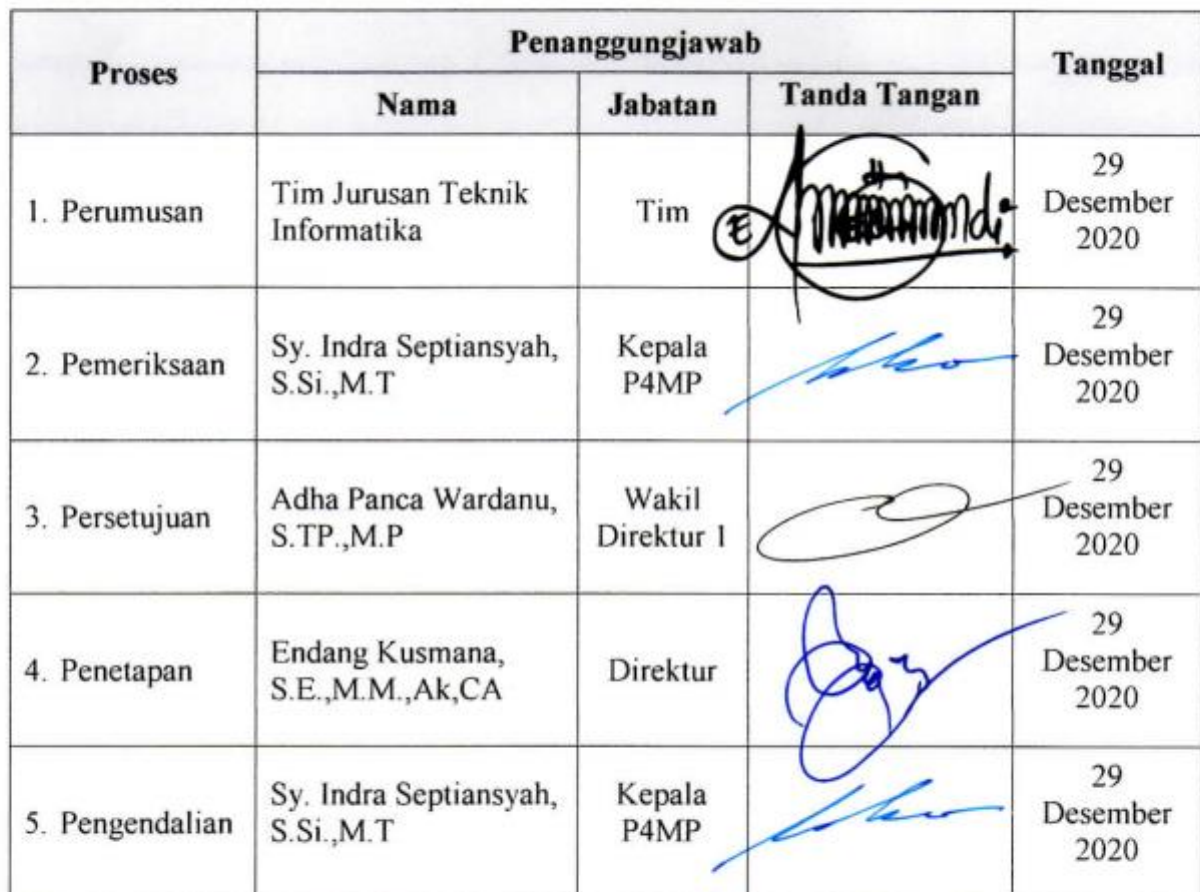 Proses
Penanggungjawab
Tanggal
Nama
Jabatan
Tanda Tangan
1. Perumusan
Tim Jurusan Teknik
Informatika
Tim
29
Desember
2020
2. Pemeriksaan
Sy. Indra Septiansyah,
S.Si.,M.T
Kepala
P4MP
29
Desember
2020
3. Persetujuan
Adha Panca Wardanu,
S.TP.,M.P
Wakil
Direktur 1
29
Desember
2020
4. Penetapan
Endang Kusmana,
S.E.,M.M.,Ak,CA
Direktur
29
Desember
2020
5. Pengendalian
Sy. Indra Septiansyah,
S.Si.,M.T
Kepala
P4MP
29
Desember
2020